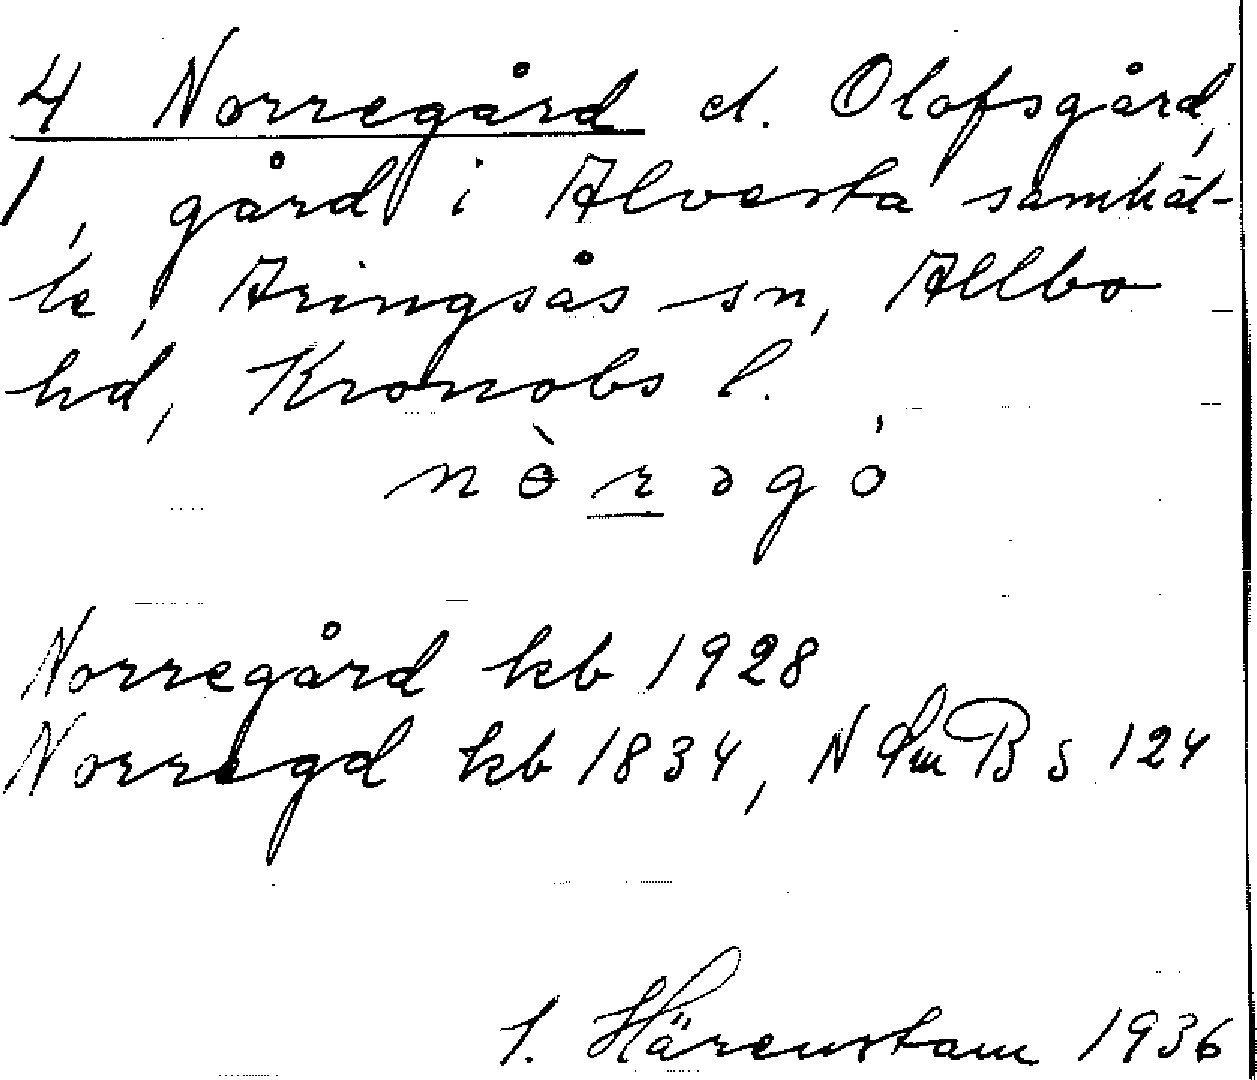 4 Norregård el. Olofsgård,
1, gård i Alvesta samhäl-
le, Aringsås sn, Allbo
hd, Kronobs l.
nɵ̀rəgó
Norregård kb 1928
Norregd kb 1834, N SmB s 124
I. Härenstam 1936